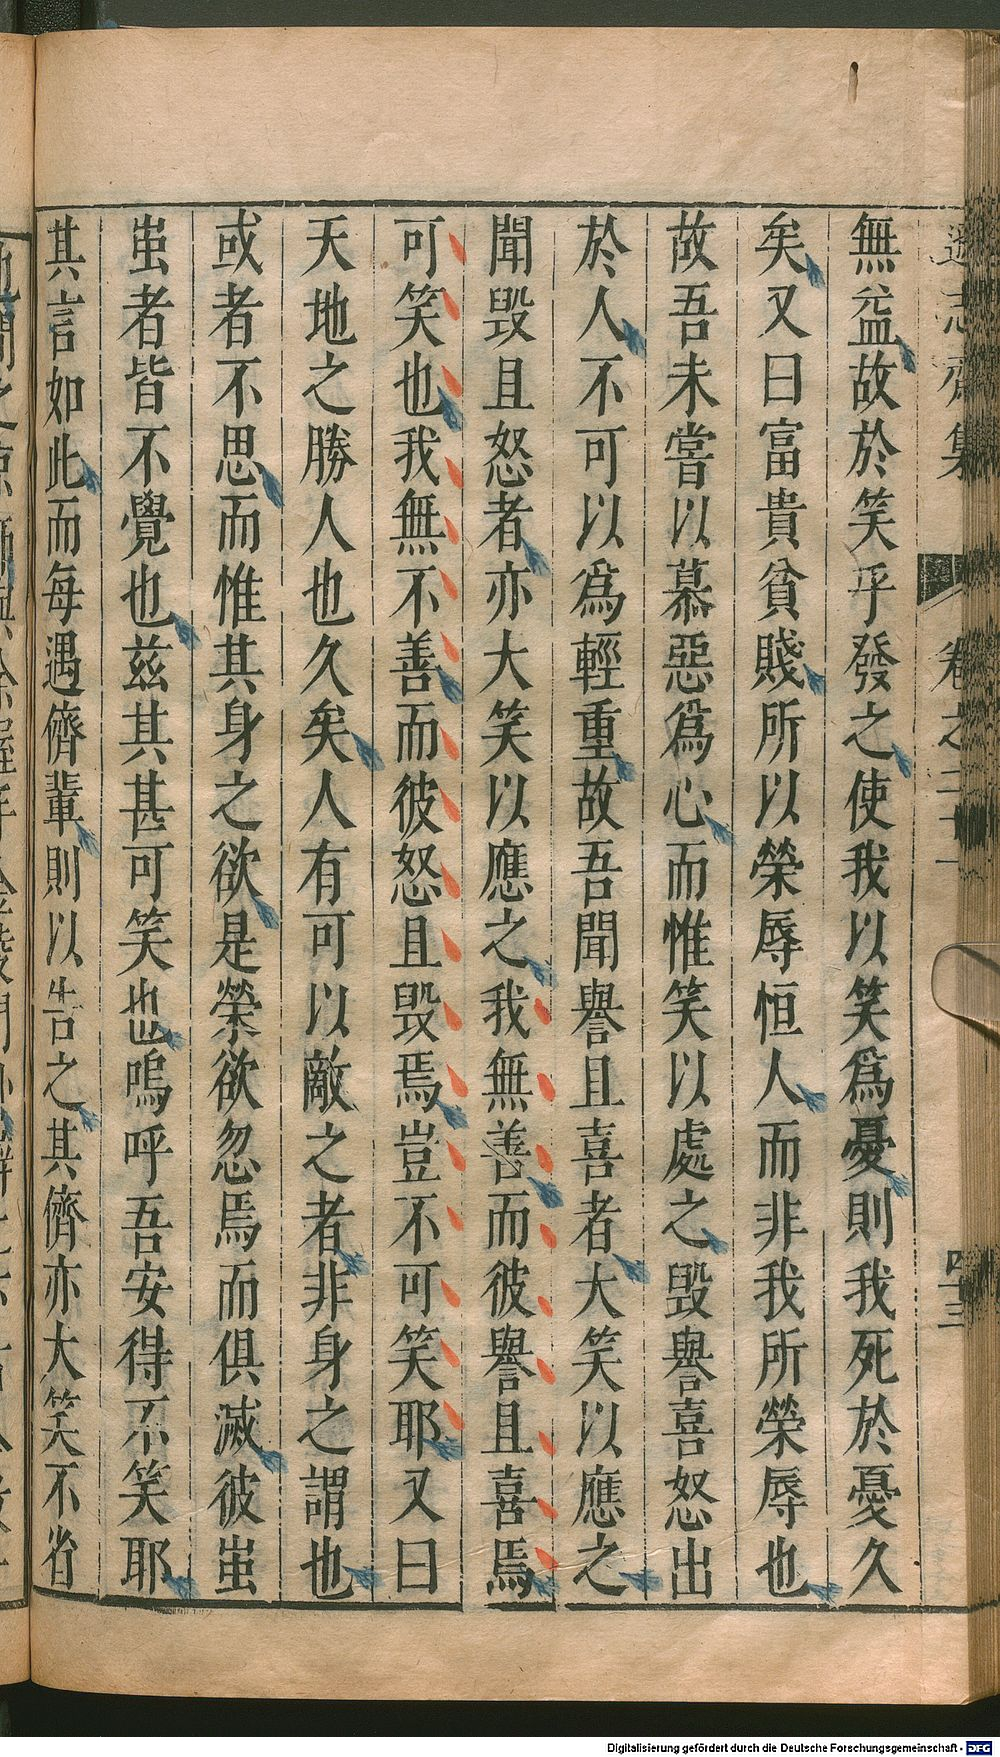 遜志齋集 卷之二十一 四十三
無益故於笑乎發之使我以笑爲憂則我死於憂久
矣又曰富貴貧賤所以榮辱恒人而非我所榮辱也
故吾未嘗以慕惡爲心而惟笑以處之毀譽喜怒出
於人不可以爲輕重故吾聞譽且喜者大笑以應之
聞毀且怒者亦大笑以應之我無善而彼譽且喜焉
可笑也我無不善而彼怒且毀焉豈不可笑耶又曰
天地之勝人也久矣人有可以敵之者非身之謂也
或者不思而惟其身之欲是榮欲忽焉而俱滅彼蚩
蚩者皆不覺也茲其甚可笑也嗚呼吾安得不笑耶
其言如此而每遇儕輩則以告之其儕亦大笑不省
Digitalisierung gefördert durch die Deutsche Forschungsgemeinschaft - DFG